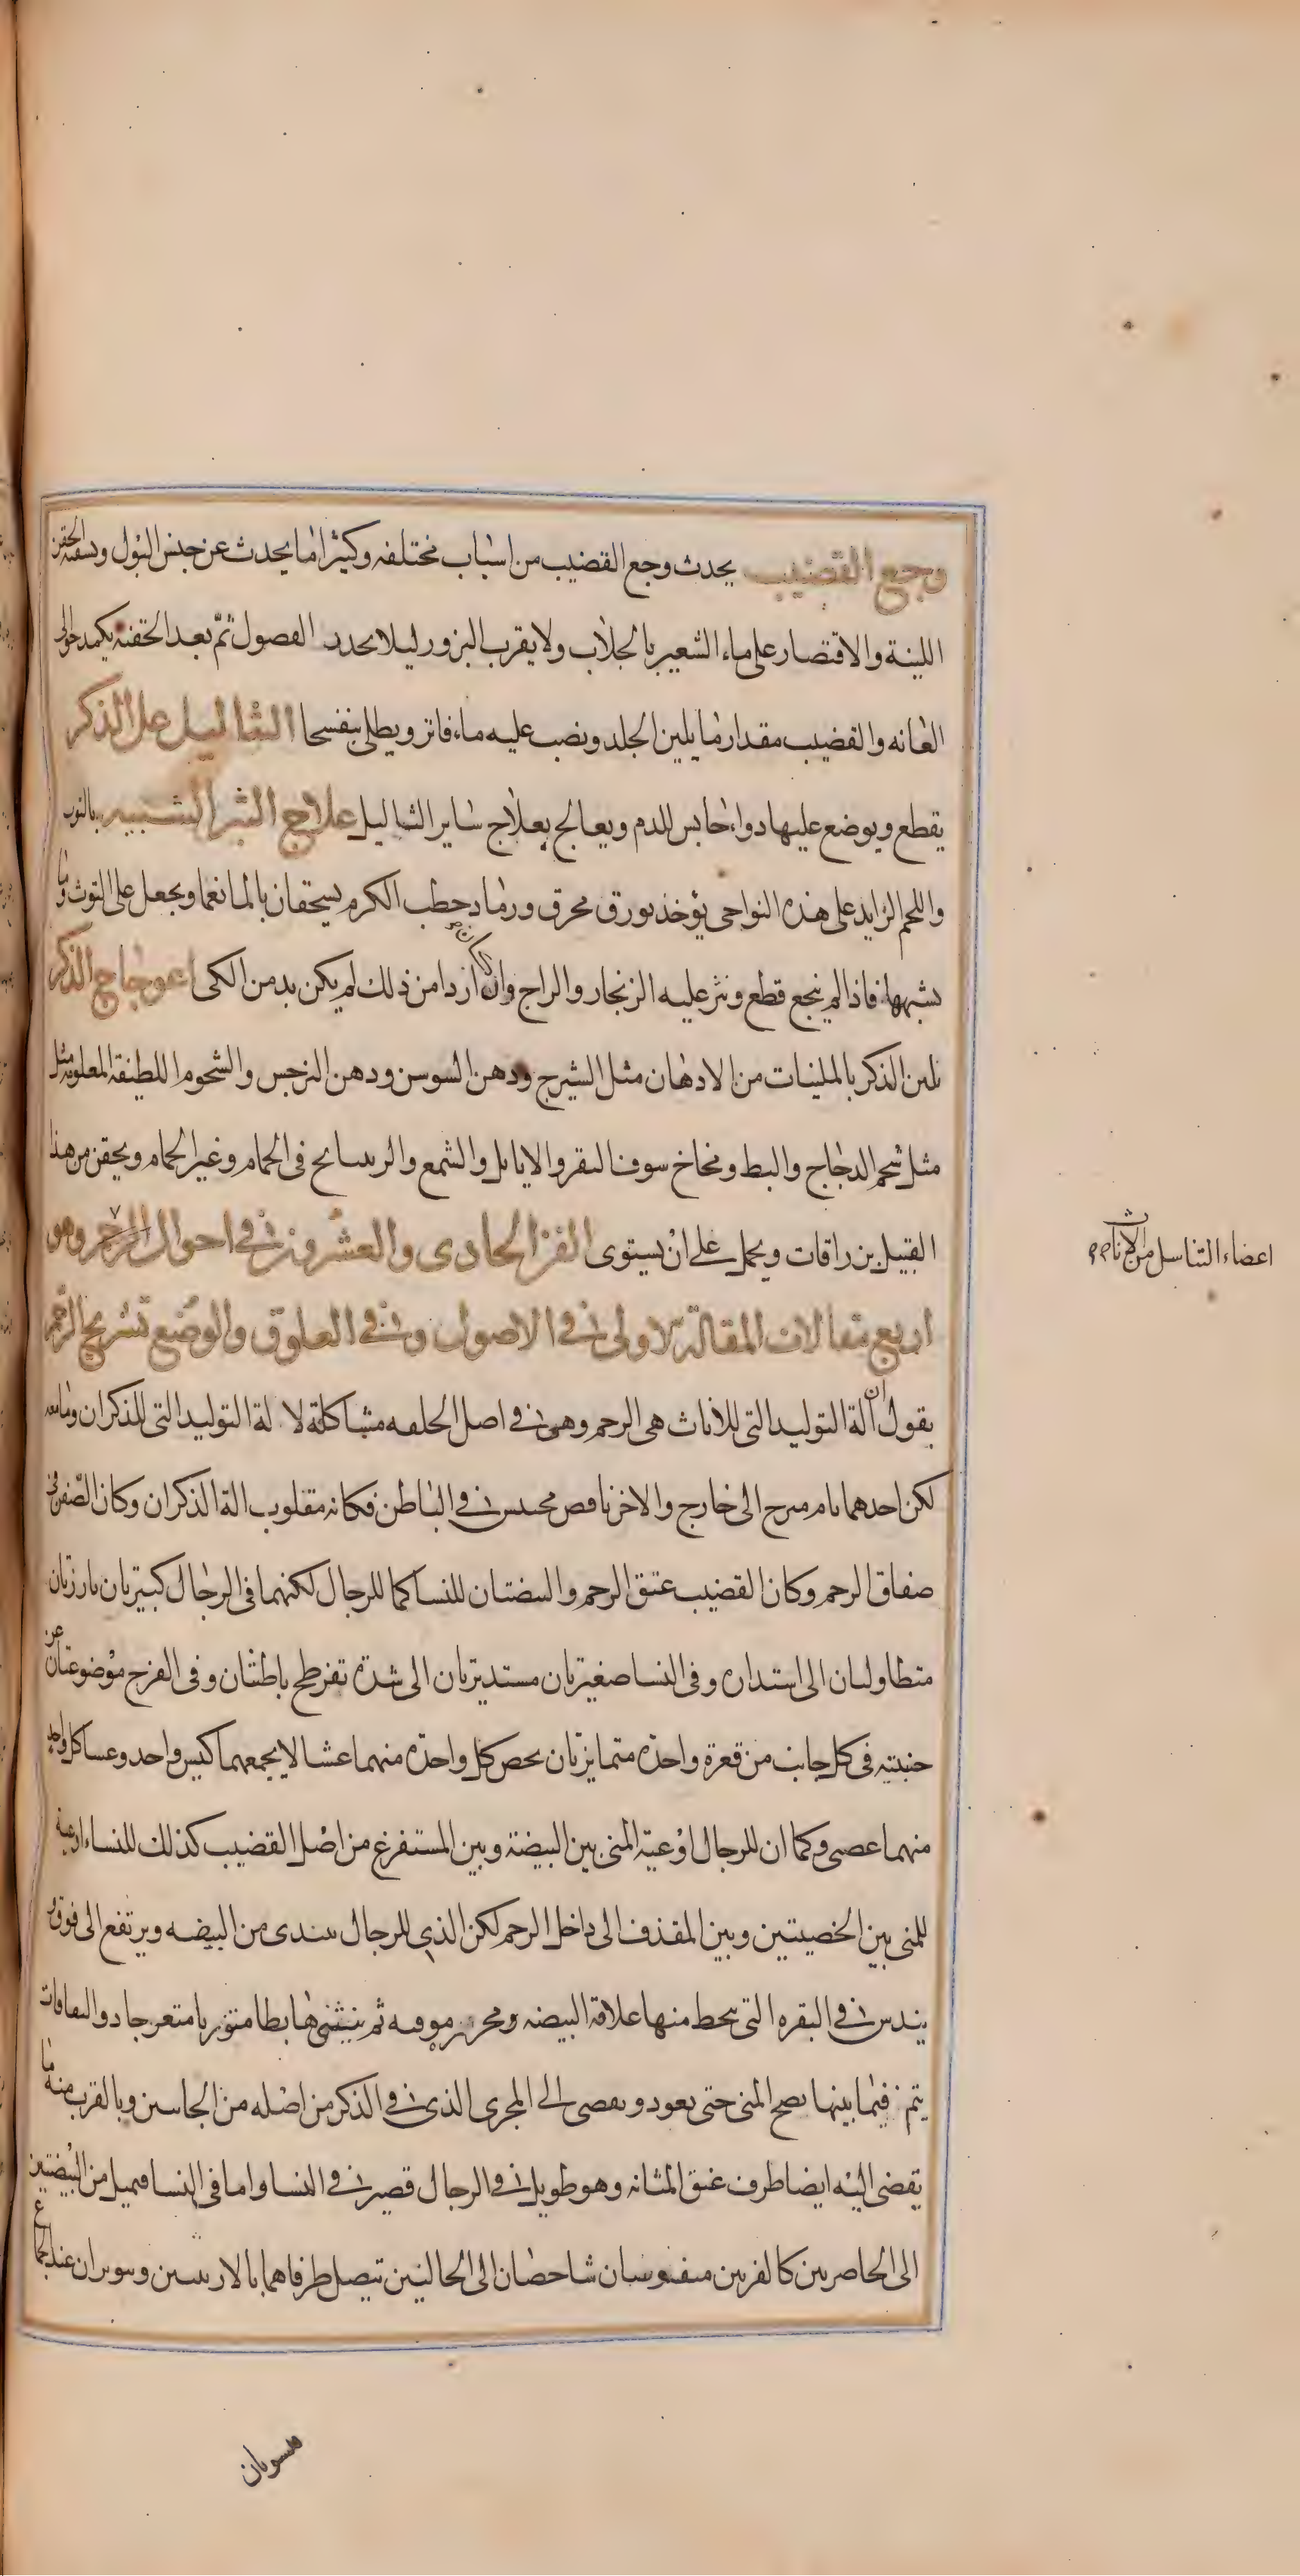 وجع القضيب يحدث وجع القضيب من اسباب مختلفه وكثيرا ما يحدث عن حبس البول وسقيه الحقن
اللينة والاقتصار على ماء الشعير بالجلاب ولا يقرب البزور ليلا يحدر الفصول ثم بعد الحقنه يكمد حوالى
العانه والقضيب مقدار ما يلين الجلد ونصب عليه ماء فاتر ويطلى بنفسجا الثاليل على الذكر
يقطع ويوضع عليها دواء حابس للدم ويعالج بعلاج ساير الثاليل علاج البثر الشبيه بالتوث
واللحم الزايد على هذه النواحى يؤخذ بورق محرق ورماد حطب الكرم يسحقان بالما نعما ويجعل على التوث وما
يشبهها فاذا لم ينجع قطع ونثر عليه الزنجار والزاج وان كان اردا من ذلك لم يكن بد من الكى اعوجاج الذكر
يلين الذكر بالملينات من الادهان مثل الشيرج ودهن السوسن ودهن النرجس والشحوم اللطيفة المعلومه مثل
مثل شحم الدجاج والبط ومخاخ سوق البقر والايايل والشمع والراتيانج فى الحمام وغير الحمام ويحقن من هذا
القبيل بزراقات ويحمل على ان يستوى الفن الحادى والعشرون فى احوال الرحم وهو
اربع مقالات المقالة الاولى فى الاصول وفى العلوق والوضع تشريح الرحم
يقول ان آلة التوليد التى للاناث هى الرحم وهى فى اصل الخلقه مشاكلة لالة التوليد التى للذكران وما معه
لكن احدهما تام مبرح الى خارج والاخر ناقص محتبس فى الباطن فكانه مقلوب الة الذكران وكان الصفن فى
صفاق الرحم وكان القضيب عنق الرحم والبيضتان للنسا كما للرجال لكنهما فى الرجال كبيرتان بارزتان
متطاولتان الى استداره وفى النسا صغيرتان مستديرتان الى شدة تفرطح باطنتان وفى الفرج موضوعتان عن
جنبتيه فى كل جانب من قعرة واحدة متمايزتان يخص كل واحدة منهما غشا لا يجمعهما كيس واحد وغشا كل واحد
منهما عصبى وكما ان للرجال اوعية المنى بين البيضة وبين المستفرغ من اصل القضيب كذلك للنساء اوعية
للمنى بين الخصيتين وبين المقذف الى داخل الرحم لكن الذى للرجال يبتدى من البيضه ويرتفع الى فوق
يندس فى البقره التى يحط منها علاقة البيضه ومحرز موقيه ثم ينثنى هابطا متوربا متعرجا ذو التفافات
يتم فيما بينها نضج المنى حتى يعود ويفضى الى المجرى الذى فى الذكر من اصله من الجانبين وبالقرب منه ما
يفضى اليه ايضا طرف عنق المثانه وهو طويل فى الرجال قصير فى النسا واما فى النسا فيميل من البيضتين
الى الخاصرتين كالقرنين مقوسان شاخصان الى الحالبين تتصل طرفاهما بالاربيتين ويتوتران عند الجماع
اعضاء التناسل من الاناث
فيسويان